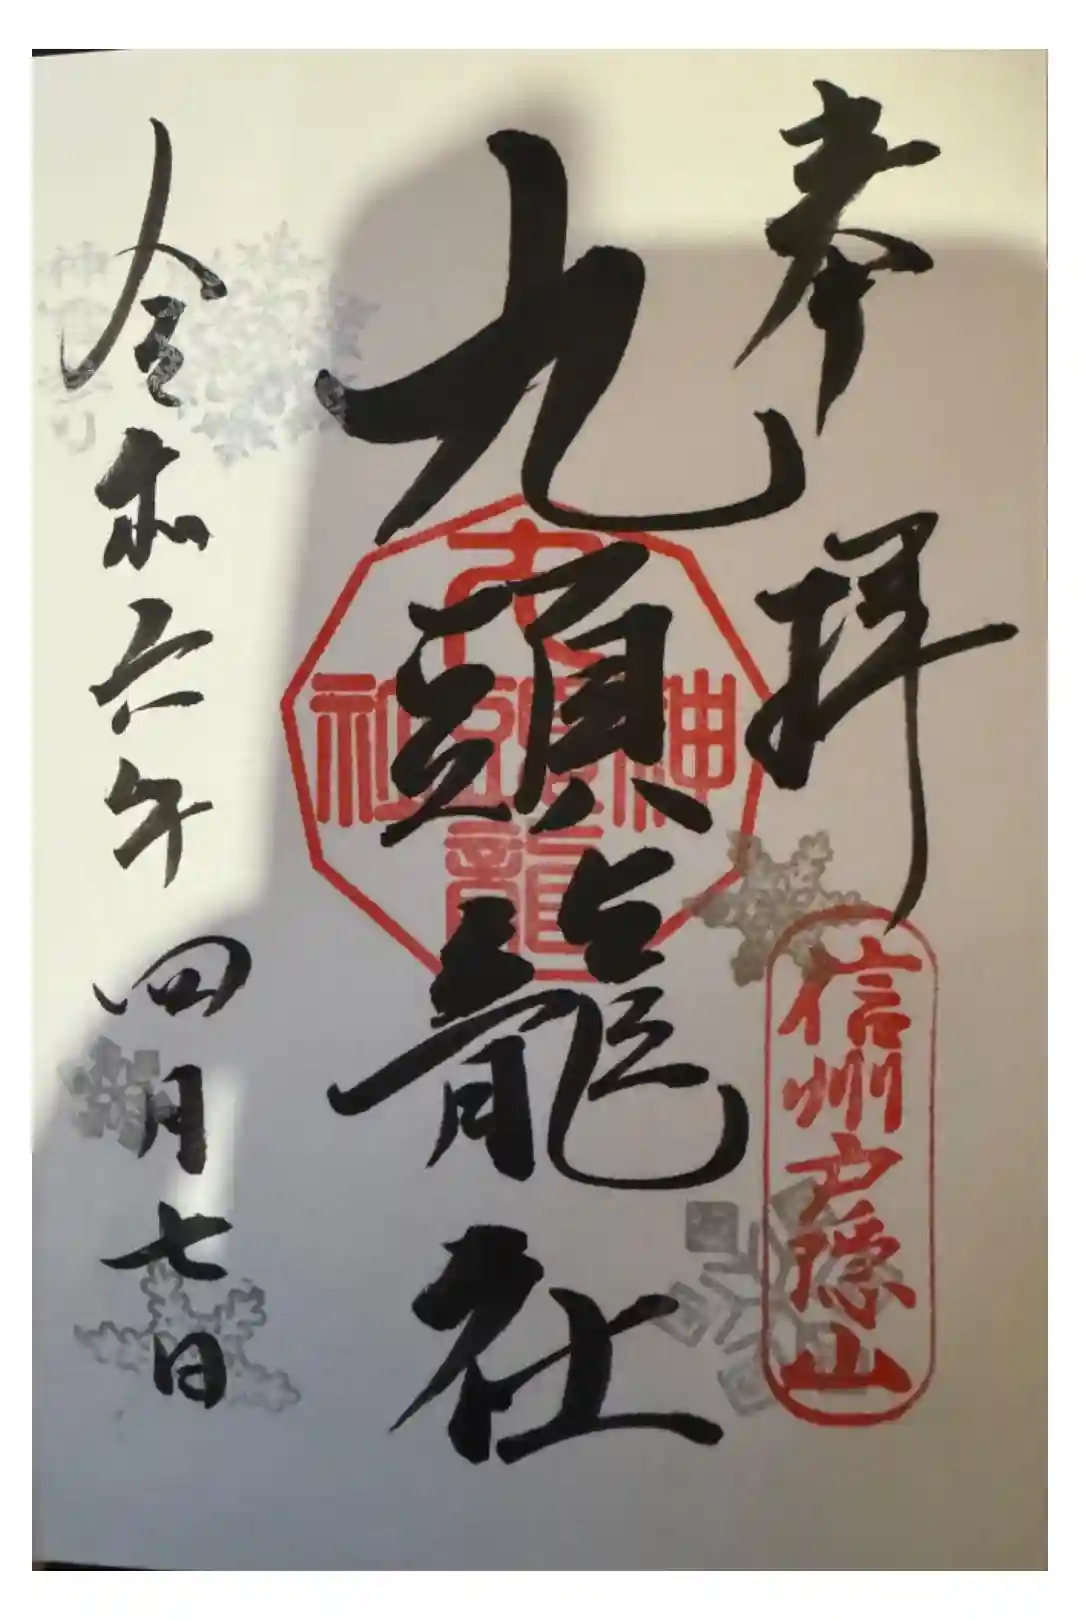 奉拝
信州戸隠山
九頭龍社
九頭龍
神
社
令和六年四月七日